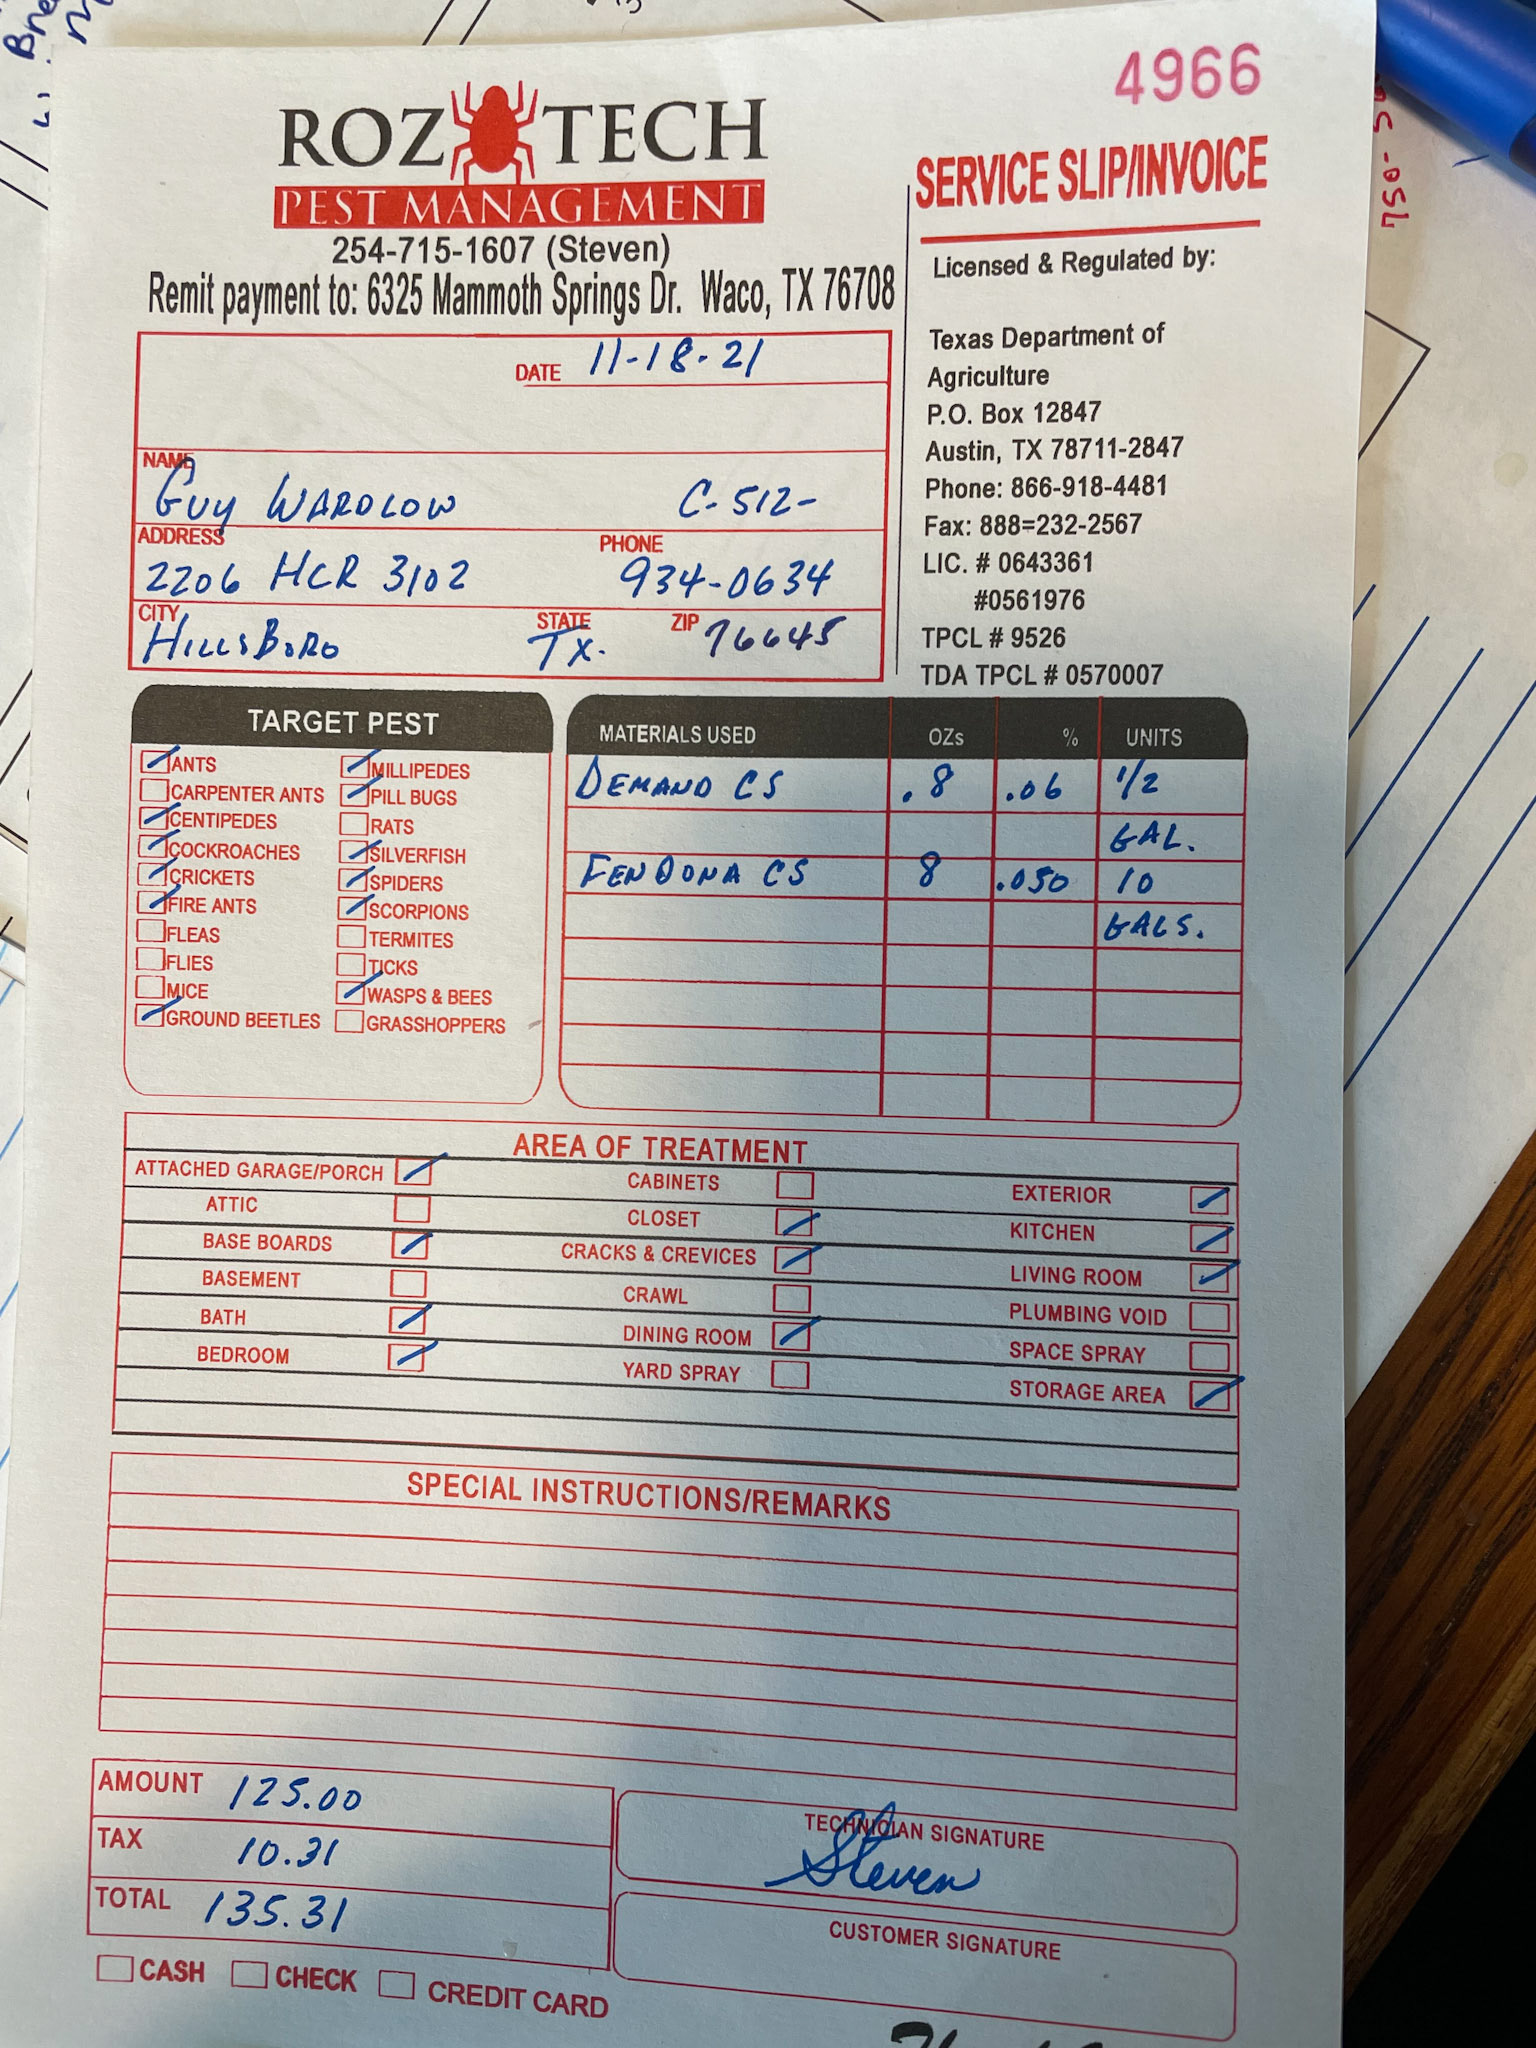 4966
ROZ TECH
PEST MANAGEMENT
254-715-1607 (Steven)
Remit payment to: 6325 Mammoth Springs Dr. Waco, TX 76708
SERVICE SLIP/INVOICE
Licensed & Regulated by:
Texas Department of
Agriculture
P.O. Box 12847
Austin, TX 78711-2847
Phone: 866-918-4481
Fax: 888=232-2567
LIC. # 0643361
#0561976
TPCL # 9526
TDA TPCL # 0570007
DATE 11-18-21
NAME
GUY WARDLOW C-512-
ADDRESS PHONE
2206 HCR 3102 934-0634
CITY STATE ZIP
HILLSBORO TX. 76645
TARGET PEST
ANTS MILLIPEDES
CARPENTER ANTS PILL BUGS
CENTIPEDES RATS
COCKROACHES SILVERFISH
CRICKETS SPIDERS
FIRE ANTS SCORPIONS
FLEAS TERMITES
FLIES TICKS
MICE WASPS & BEES
GROUND BEETLES GRASSHOPPERS
MATERIALS USED OZs % UNITS
DEMAND CS .8 .06 1/2
GAL.
FENDONA CS 8 .050 10
GALS.
AREA OF TREATMENT
ATTACHED GARAGE/PORCH CABINETS EXTERIOR
ATTIC CLOSET KITCHEN
BASE BOARDS CRACKS & CREVICES LIVING ROOM
BASEMENT CRAWL PLUMBING VOID
BATH DINING ROOM SPACE SPRAY
BEDROOM YARD SPRAY STORAGE AREA
SPECIAL INSTRUCTIONS/REMARKS
AMOUNT 125.00
TAX 10.31
TOTAL 135.31
TECHNICIAN SIGNATURE
Steven
CUSTOMER SIGNATURE
CASH CHECK CREDIT CARD